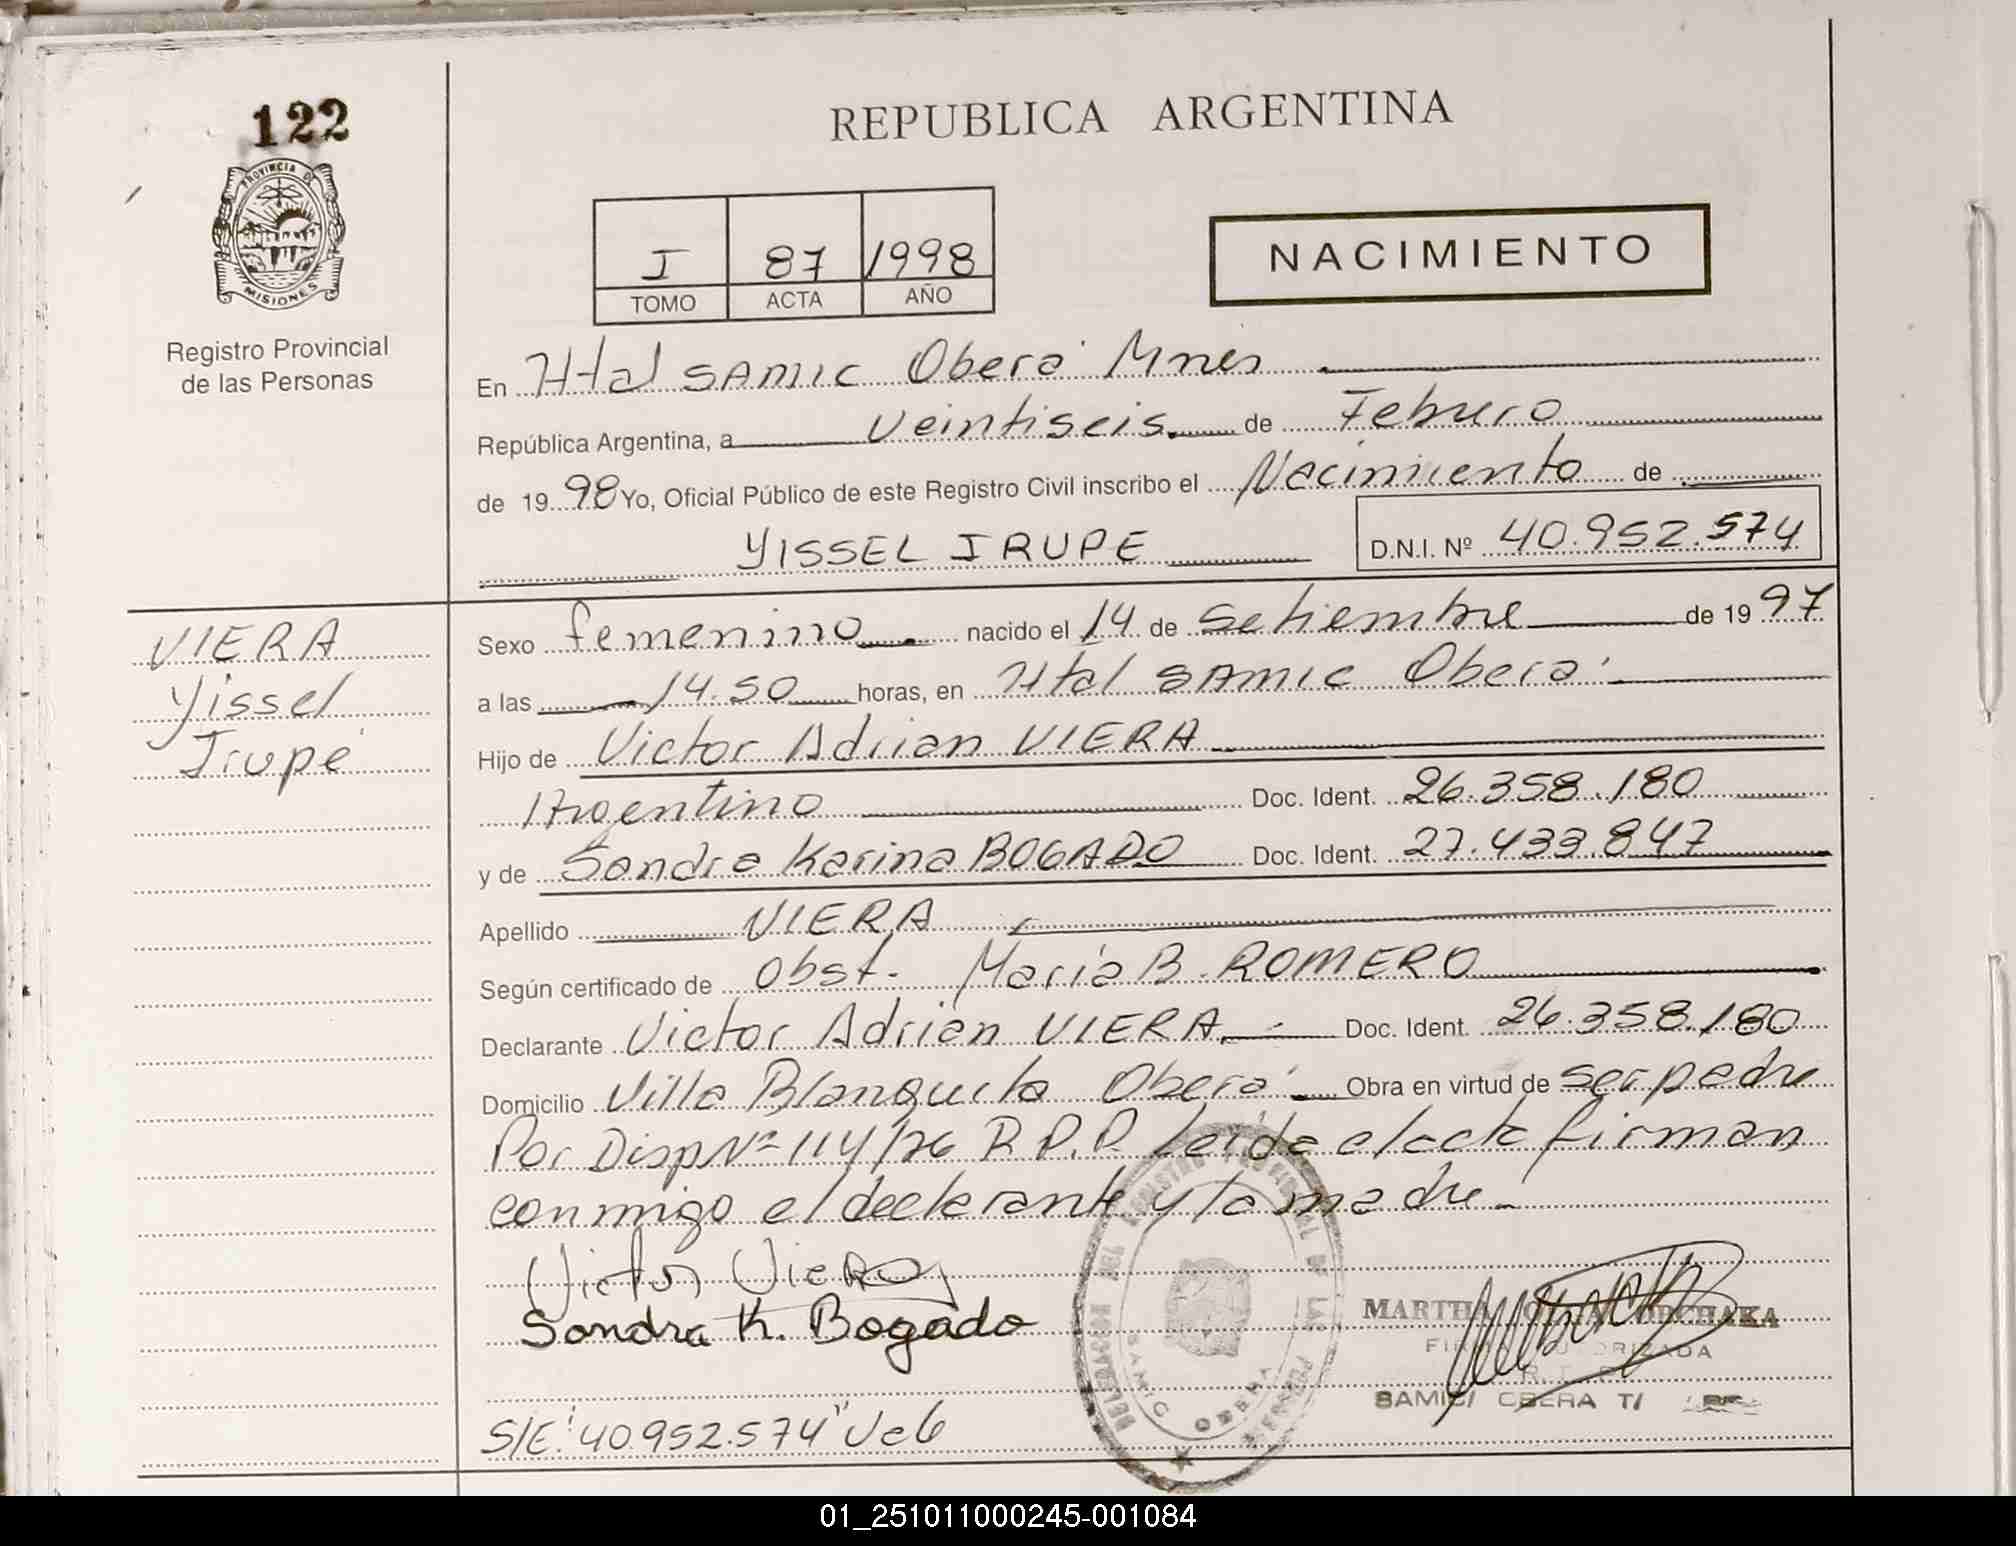 122
PROVINCIA DE
MISIONES
Registro Provincial
de las Personas
REPUBLICA ARGENTINA
I 87 1998
TOMO ACTA AÑO
NACIMIENTO
En Htal SAMIC Oberá Mnes
República Argentina, a veintiseis de Febrero
de 1998 Yo, Oficial Público de este Registro Civil inscribo el Nacimiento de
YISSEL IRUPE D.N.I. Nº 40.952.574
VIERA
Yissel
Irupé
Sexo femenino nacido el 14 de Setiembre de 1997
a las 14.50 horas, en Htal SAMIC Oberá
Hijo de Victor Adrian VIERA
Argentino Doc. Ident. 26.358.180
y de Sandra Karina BOGADO Doc. Ident. 27.433.847
Apellido VIERA
Según certificado de Obst. María B. ROMERO
Declarante Victor Adrián VIERA Doc. Ident. 26.358.180
Domicilio Villa Blanquita Oberá Obra en virtud de ser padre
Por Disp Nº 114/76 R.P.P. leída el acta firman
conmigo el declarante y la madre.
Victor Viera
Sandra K. Bogado
DELEGACION DEL REGISTRO PROVINCIAL DE LAS PERSONAS
SAMIC OBERA
MARTHA
FIRMA AUTORIZADA
SAMIC/ OBERA T/
S/E: "40.952.574"
01_251011000245-001084